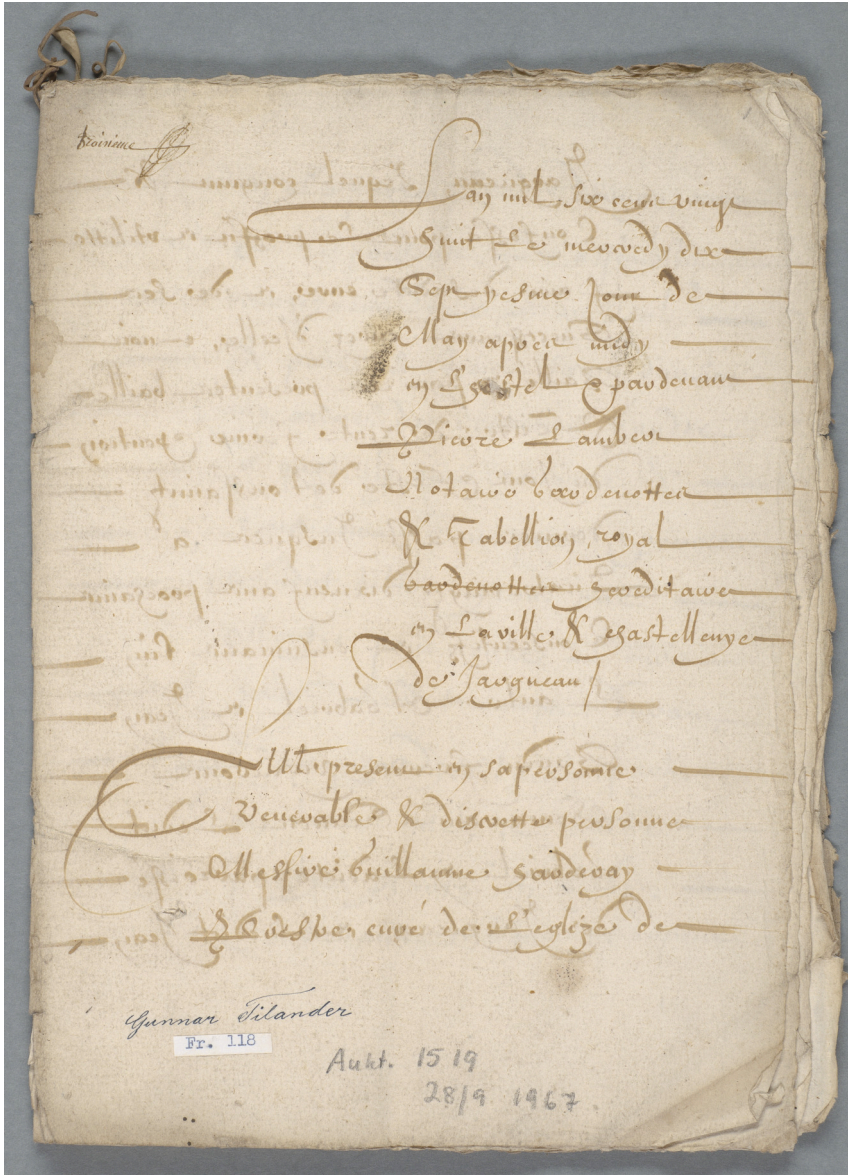 troisieme
Lan mil six cens vingt
huit Le mercredy dix
Sept yesme Jour de
May apres midy
en L'hostel & pardevant
Pierre Lambert
Notaire gardenottes
& Tabellion royal
gardenottes hereditaire
en La ville & chastellenye
de Jargueau /
Fut present en sa personne
Venerable & discrette personne
Messire Guillaume
Prestre curé de L'eglize de
Gunnar Tilander
Fr. 118
Aukt. 1519
28/9 1967